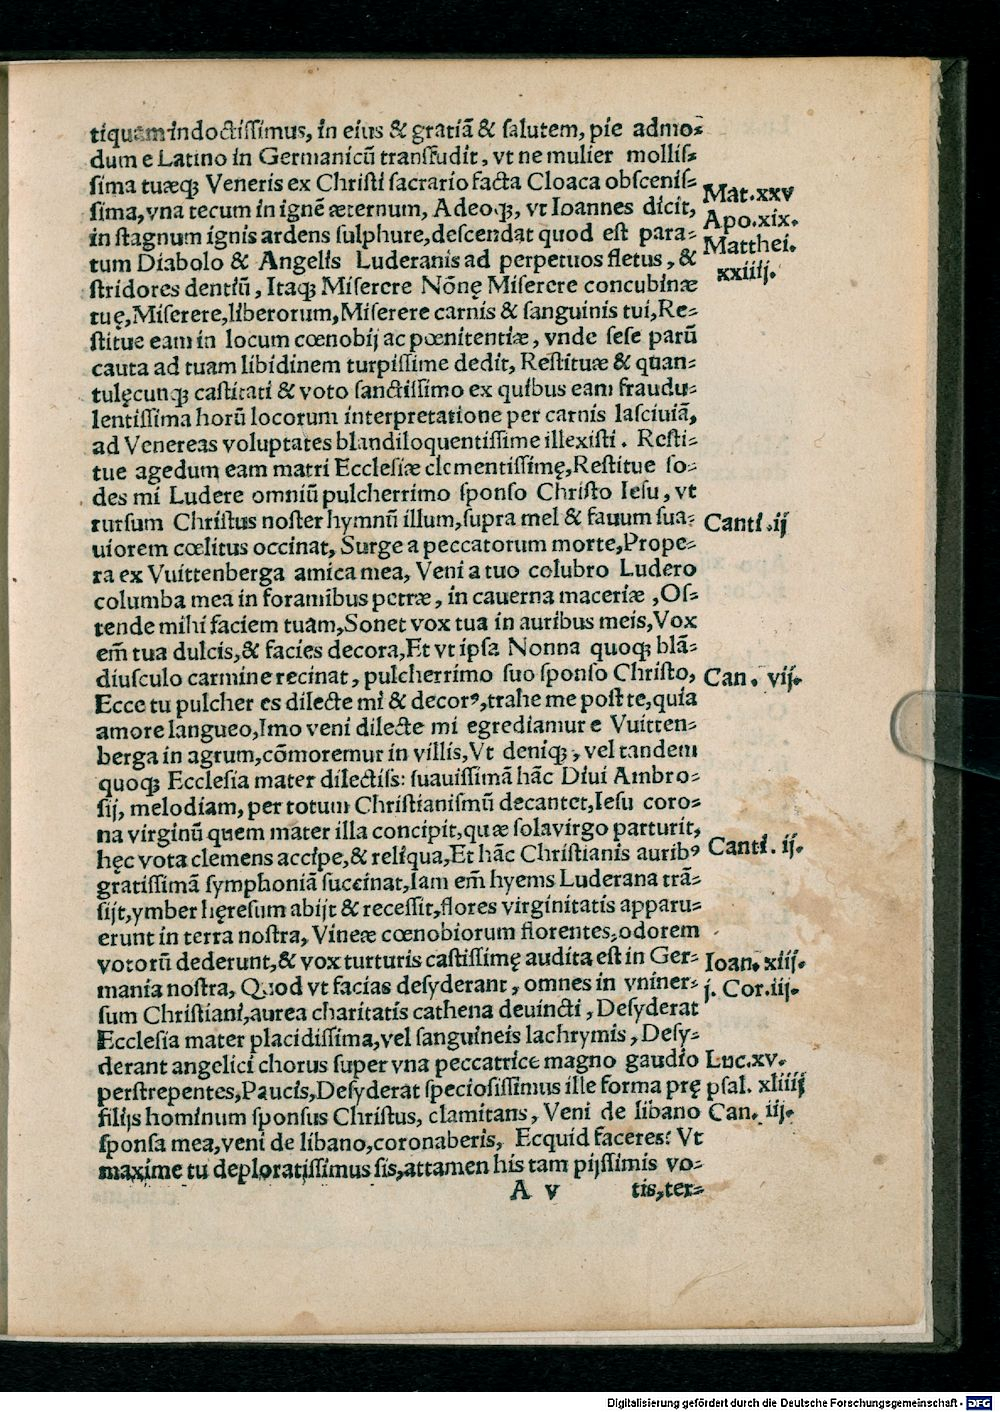 tiquam indoctissimus, in eius & gratiã & salutem, pie admo-
dum e Latino in Germanicũ transfudit, vt ne mulier mollis-
sima tuæqꝫ Veneris ex Christi sacrario facta Cloaca obscenis-
sima, vna tecum in ignẽ æternum, Adeoqꝫ, vt Ioannes dicit,
Mat.xxv
Apo.xix.
in stagnum ignis ardens sulphure, descendat quod est para-
Matthei.
tum Diabolo & Angelis Luderanis ad perpetuos fletus, &
xxiiij.
stridores dentiũ, Itaqꝫ Miserere Nõnę Miserere concubinæ
tuę, Miserere, liberorum, Miserere carnis & sanguinis tui, Re-
stitue eam in locum cœnobij ac pœnitentiæ, vnde sese parũ
cauta ad tuam libidinem turpissime dedit, Restituæ & quan-
tulęcunqꝫ castitati & voto sanctissimo ex quibus eam fraudu-
lentissima horũ locorum interpretatione per carnis lasciuiã,
ad Venereas voluptates blandiloquentissime illexisti. Resti-
tue agedum eam matri Ecclesiæ clementissimę, Restitue so-
des mi Ludere omniũ pulcherrimo sponso Christo Iesu, vt
rursum Christus noster hymnũ illum, supra mel & fauum sua-
Canti.ij
uiorem cœlitus occinat, Surge a peccatorum morte, Prope-
ra ex Vuittenberga amica mea, Veni a tuo colubro Ludero
columba mea in foraminibus petræ, in cauerna maceriæ, Os-
tende mihi faciem tuam, Sonet vox tua in auribus meis, Vox
em̃ tua dulcis, & facies decora, Et vt ipsa Nonna quoqꝫ blã-
diusculo carmine recinat, pulcherrimo suo sponso Christo,
Can. vij.
Ecce tu pulcher es dilecte mi & decorꝰ, trahe me post te, quia
amore langueo, Imo veni dilecte mi egrediamur e Vuitten-
berga in agrum, cõmoremur in villis, Vt deniqꝫ, vel tandem
quoqꝫ Ecclesia mater dilectiss: suauissimã hãc Diui Ambro-
sij, melodiam, per totum Christianismũ decantet, Iesu coro-
na virginũ quem mater illa concipit, quæ sola virgo parturit,
hęc vota clemens accipe, & reliqua, Et hãc Christianis auribꝰ
Canti. ij.
gratissimã symphoniã succinat, Iam em̃ hyems Luderana trã-
sijt, ymber hęresum abijt & recessit, flores virginitatis apparu-
erunt in terra nostra, Vineæ cœnobiorum florentes, odorem
votorũ dederunt, & vox turturis castissimę audita est in Ger-
Ioan.xiij.
mania nostra, Quod vt facias desyderant, omnes in vniner-
j. Cor.iij.
sum Christiani, aurea charitatis cathena deuincti, Desyderat
Ecclesia mater placidissima, vel sanguineis lachrymis, Desy-
derant angelici chorus super vna peccatrice magno gaudio
Luc.xv.
perstrepentes, Paucis, Desyderat speciosissimus ille forma prę
psal. xliiij
filijs hominum sponsus Christus, clamitans, Veni de libano
Can. iij.
sponsa mea, veni de libano, coronaberis, Ecquid faceres? Vt
maxime tu deploratissimus sis, attamen his tam pijssimis vo-
A v tis, ter-
Digitalisierung gefördert durch die Deutsche Forschungsgemeinschaft - DFG